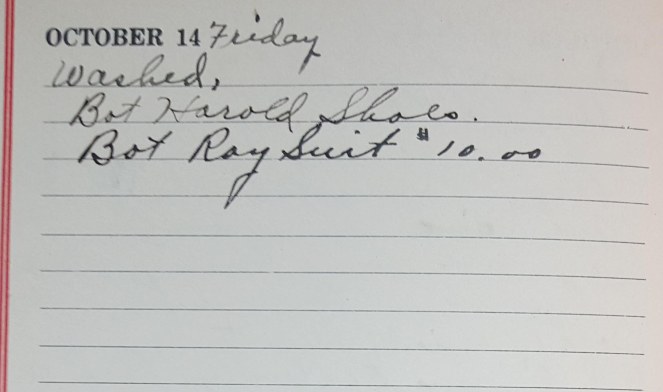 OCTOBER 14 Friday
Washed,
Bot Harold Shoes.
Bot Ray Suit $10.00